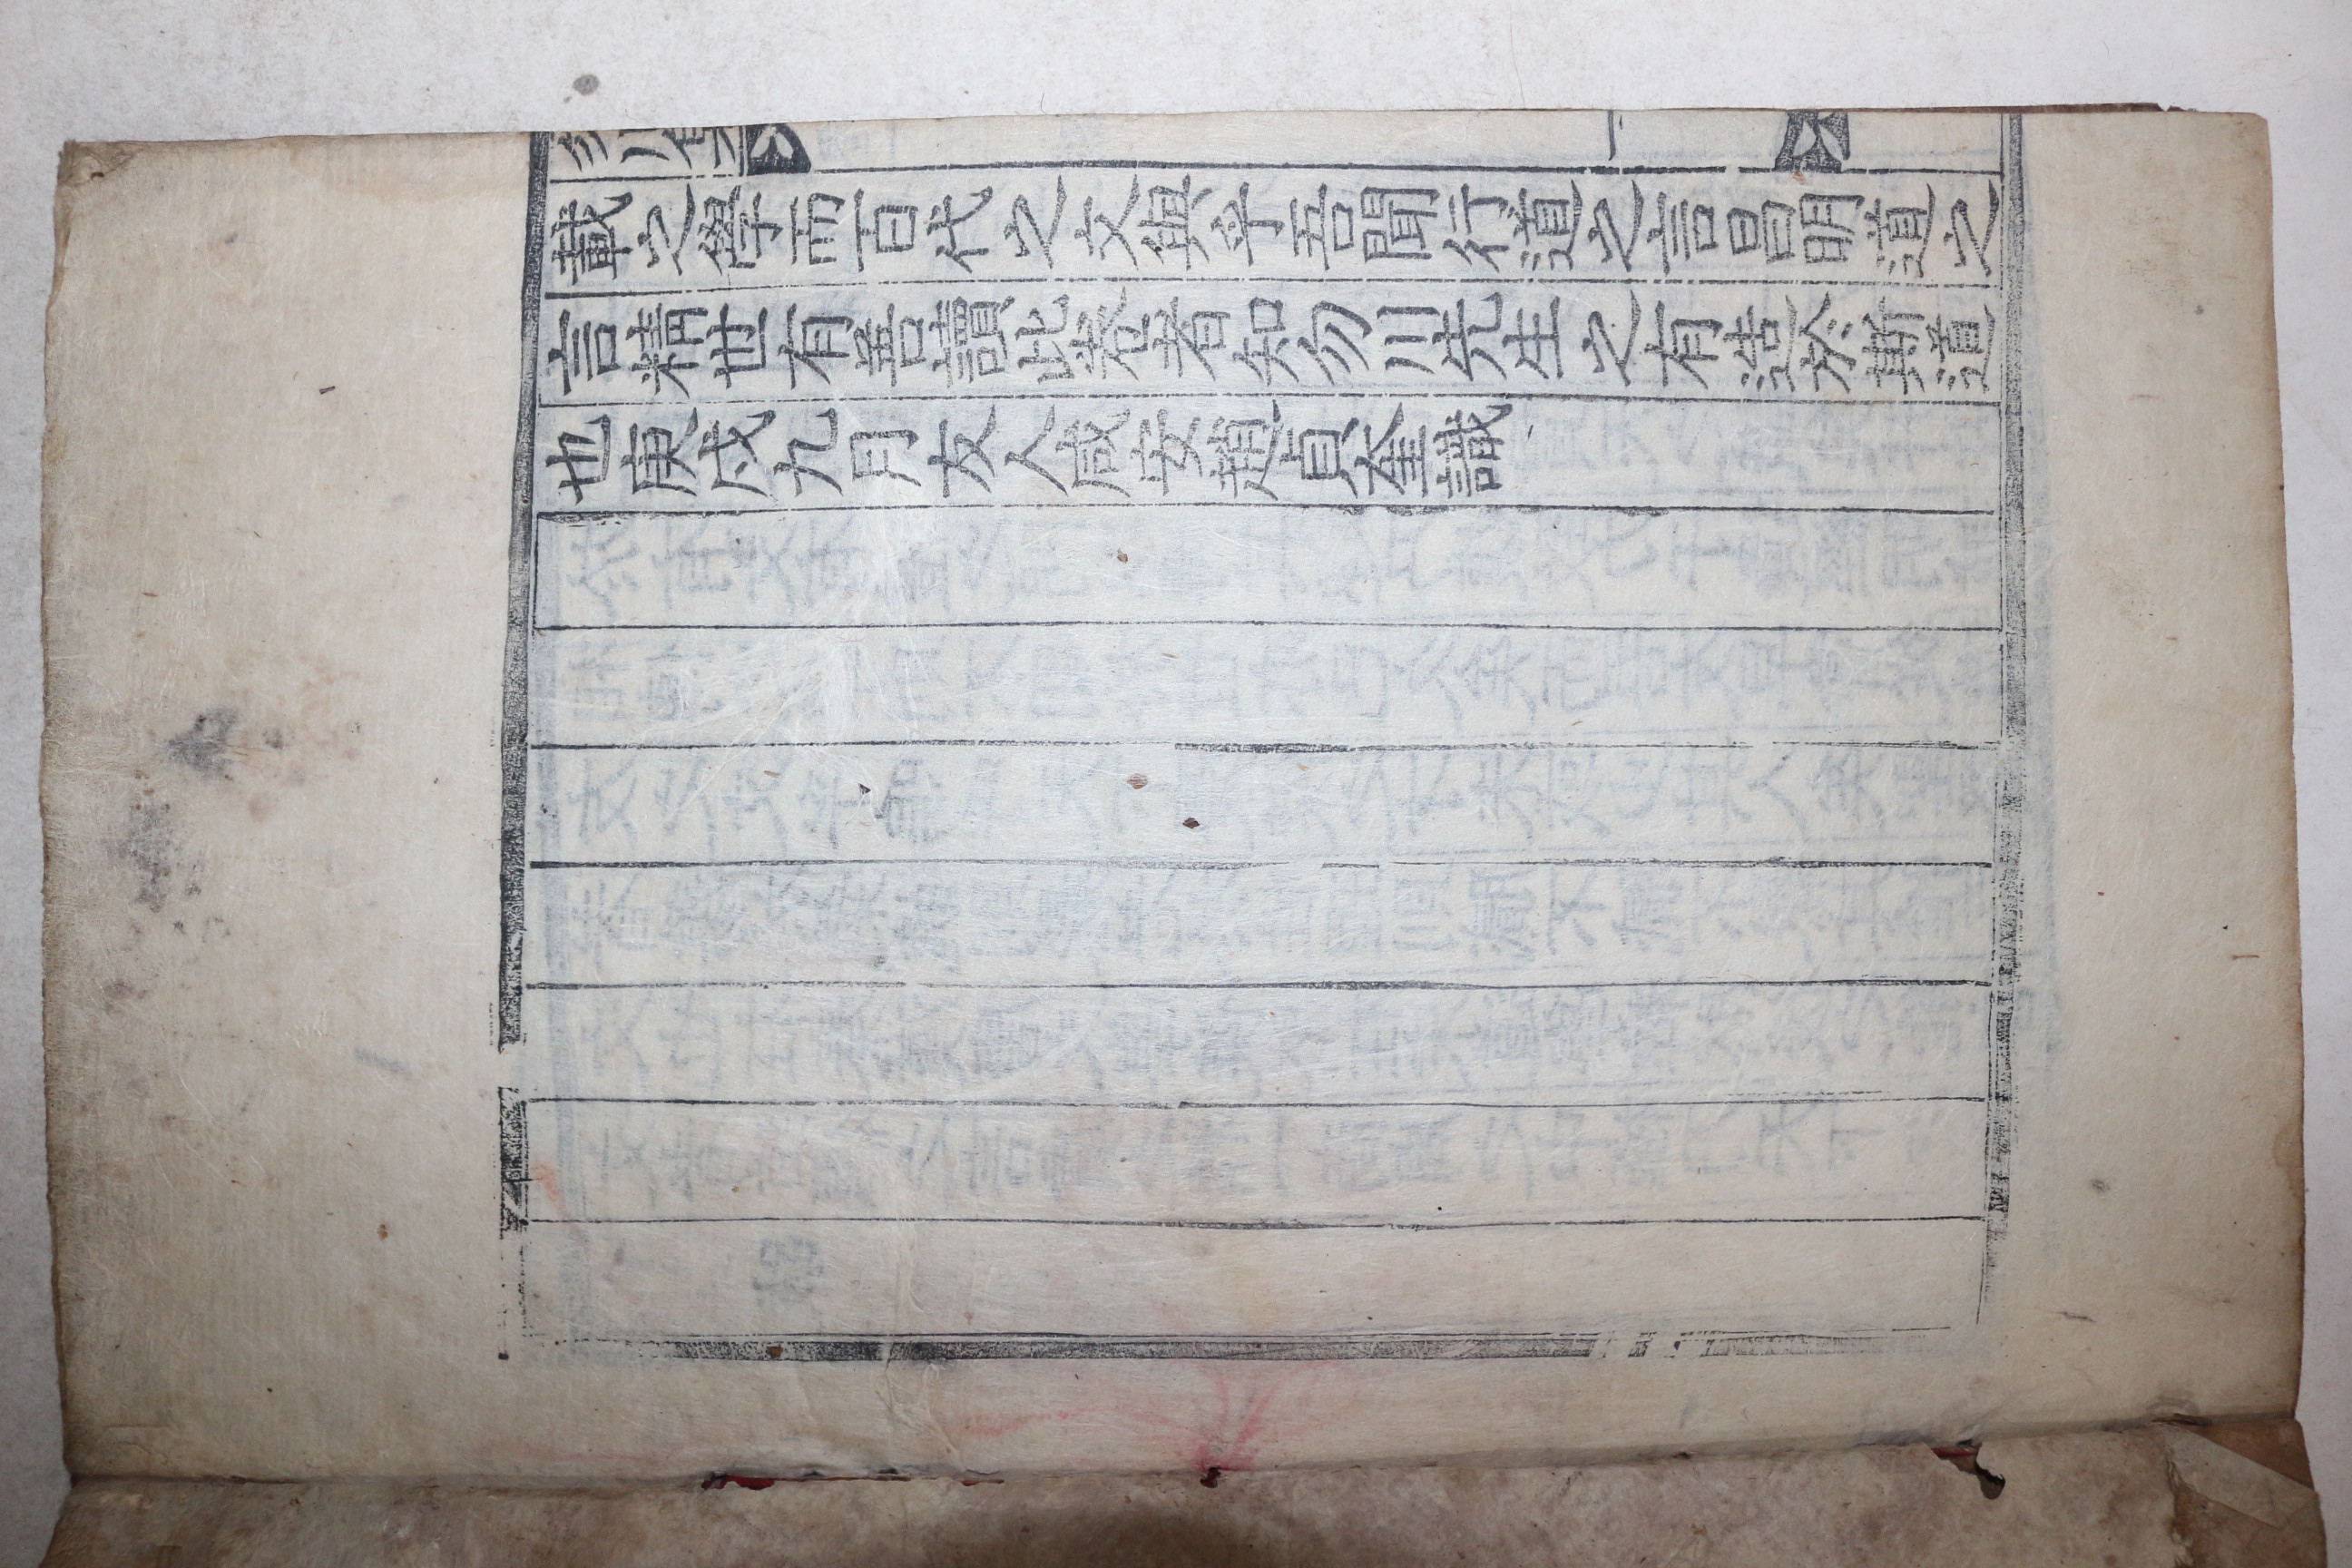 載之學而百代之文煥乎吾聞行道之言昌明道之
言精世有善讀此卷者知勿川先生之有造於斯道
也庚戌九月友人咸安趙貞奎識